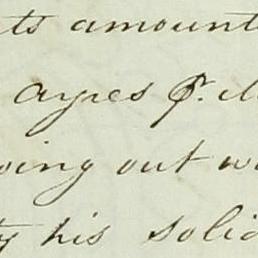 ts amount
Ayres Pr. M
oing out w
ty his solid